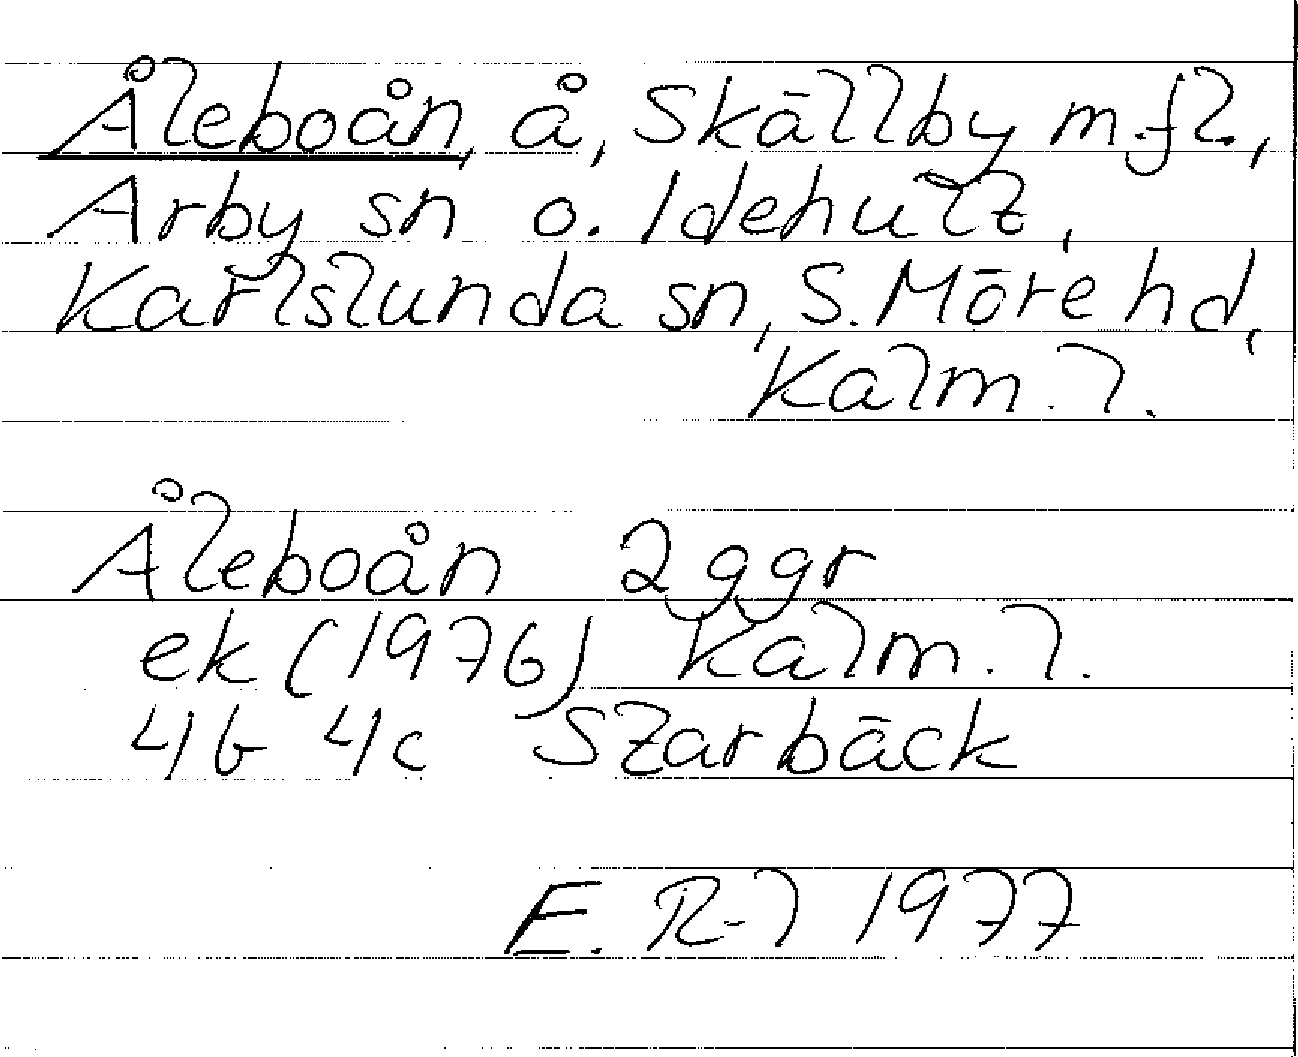 Åleboån, å, Skällby m.fl.,
Arby sn o. Idehult,
Karlslunda sn, S. Möre hd,
Kalm. l.
Åleboån 2 ggr
ek (1976) Kalm. l.
4G 4c Szarbäck
E. R-l 1977